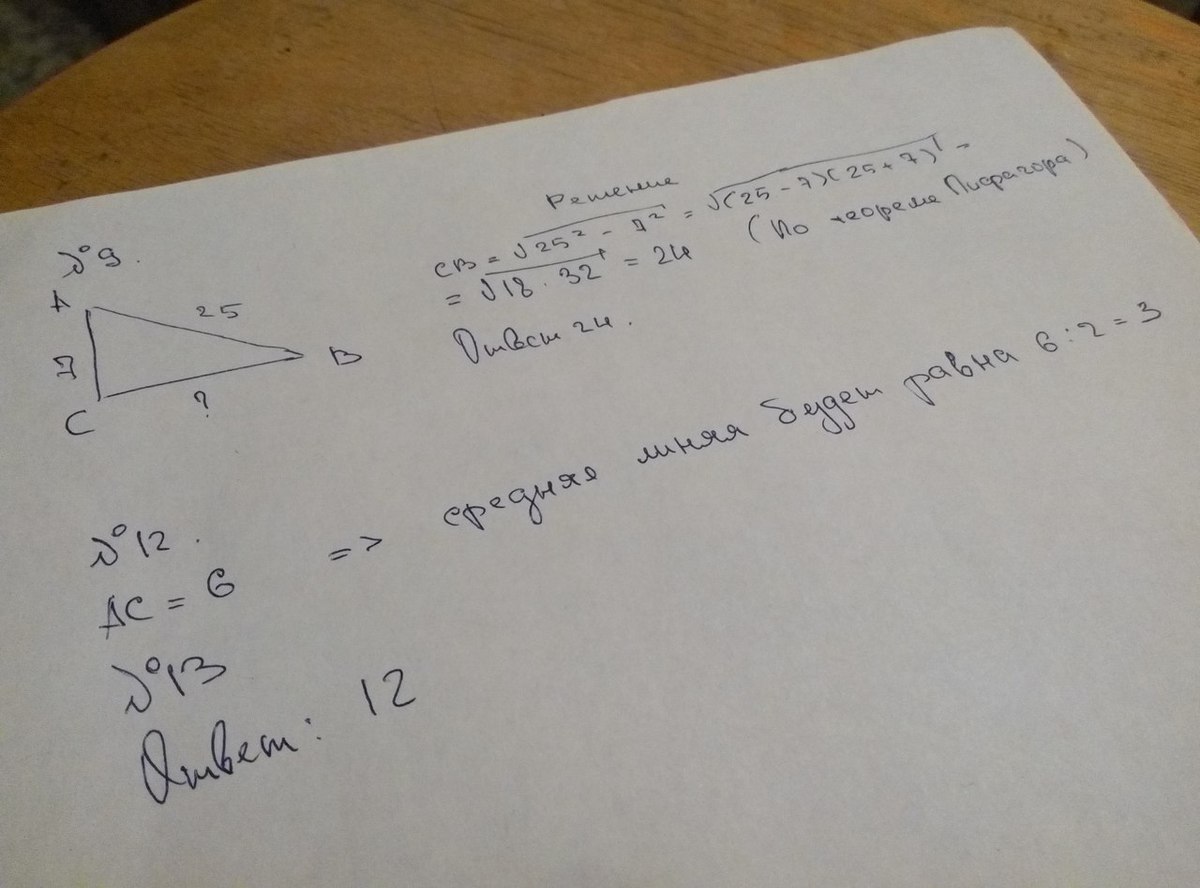 №9.
A
25
7
B
C
?
Решение
CB = √25² - 7² = √(25 - 7)(25 + 7) =
= √18 · 32 = 24 (По теореме Пифагора)
Ответ 24.
№12.
AC = 6 => средняя линяя будет равна 6 : 2 = 3
№13
Ответ: 12